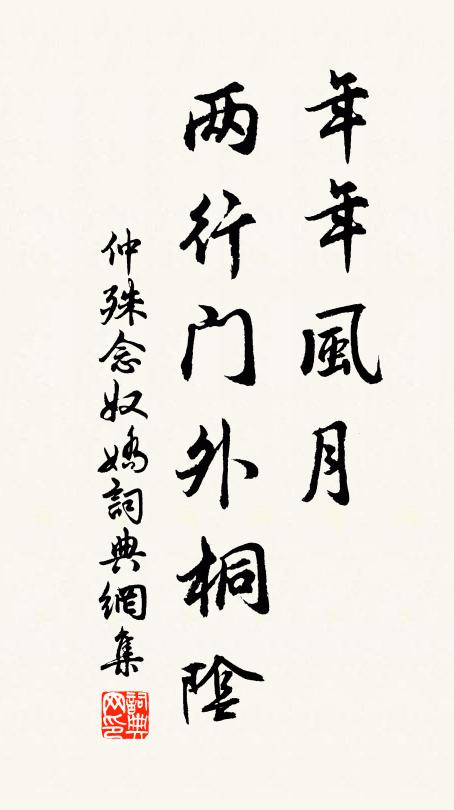 年年風月
两行门外桐陰
仲殊念奴嬌詞典網集
詞典网印